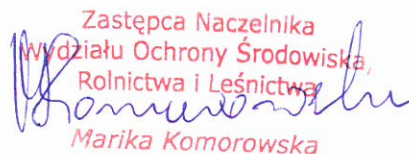 Zastępca Naczelnika
Wydziału Ochrony Środowiska,
Rolnictwa i Leśnictwa
MKomorowska
Marika Komorowska